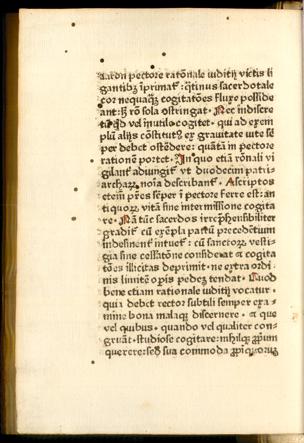 aaron pectore ratōnale iuditij victis li
gantibꝫ īprimať: qͣtinus sacerdotale
cor nequaqꝫ cogitatōes fluxe posside
ant: sꝫ rō sola ꝯstringat · Nec indiscre
tū qͥd vel inutile cogitet · qui ad exem
plū alijs ꝯstitutꝰ ex grauitate vite sē
per debet oſtēdere: quātā in pectore
rationē portet · In quo etiā rōnali vi
gilanť adiungiť vt duodecim patri-
archaꝝ noīa describanť · Ascriptos
etem̄ pr̄es sēper ī pectore ferre est: an
tiquoꝝ vitā sine intermissione cogita
re · Nā tūc sacerdos irrep̄hensibiliter
gradiť cū exēpla patrū precedētium
indesinenť intueť: cū sanctoꝝ vesti-
gia sine cessatōne considerat ⁊ cogita
tōes illicitas deprimit · ne extra ordi
nis limitē oꝑis pedeꝫ tendat · Quod
bene etiam rationale iuditij vocatur ·
quia debet rector subtili semper exa-
mine bona malaqꝫ discernere · ⁊ que
vel quibus · quando vel qualiter con-
gruāt · studiose cogitare: nihilqꝫ ꝓpriū
querere: sed sua commoda ꝓpīquorū